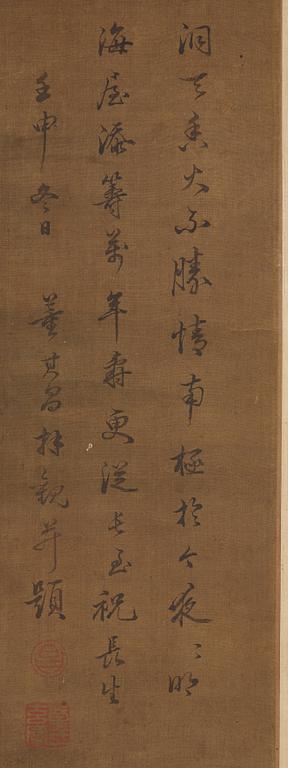 洞天香火不勝情南極於今夜〻明
海屋添籌萬年壽更從長至祝長生
壬申冬日 董其昌拜觀並題